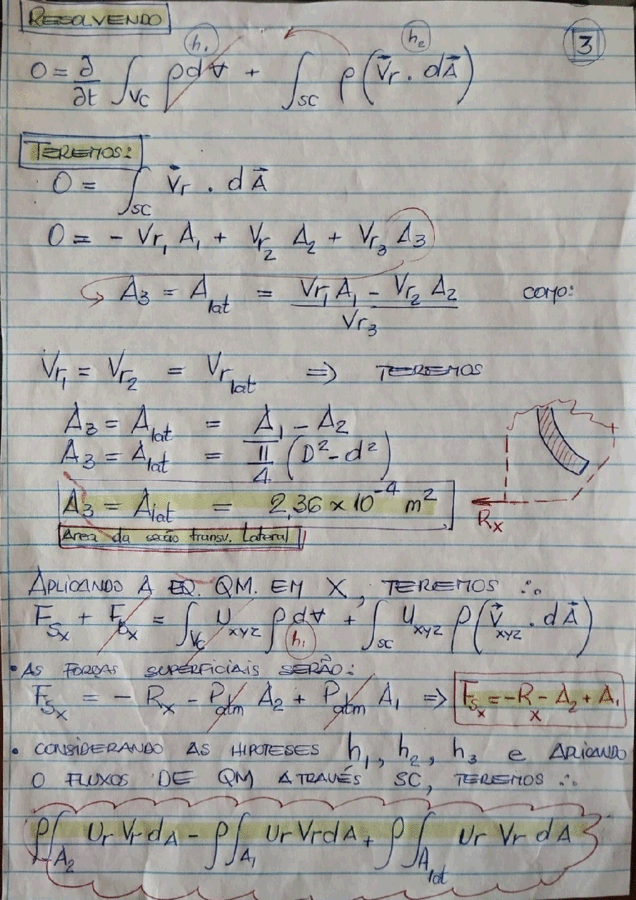 RESOLVENDO
h₁ h₂ 3
0 = ∂/∂t ∫VC ρ d∀ + ∫SC ρ (V⃗r . dA⃗)
TEREMOS:
0 = ∫SC V⃗r . dA⃗
0 = - Vr₁ A₁ + Vr₂ A₂ + Vr₃ A₃
A₃ = Alat = (Vr₁ A₁ - Vr₂ A₂) / Vr₃ como:
Vr₁ = Vr₂ = Vrlat ⇒ TEREMOS
A₃ = Alat = A₁ - A₂
A₃ = Alat = π/4 (D² - d²)
A₃ = Alat = 2,36 x 10⁻⁴ m²
Rx
Área da seção transv. Lateral
APLICANDO A EQ. QM. EM X, TEREMOS ∴
FSx + FBx = ∫VC Uxyz ρ d∀ + ∫SC Uxyz ρ (V⃗xyz . dA⃗)
h₁
• AS FORÇAS SUPERFICIAIS SERÃO:
FSx = - Rx - Patm A₂ + Patm A₁ ⇒ FSx = -Rx - A₂ + A₁
• CONSIDERANDO AS HIPOTESES h₁, h₂, h₃ e APLICANDO
O FLUXOS DE QM ATRAVÉS SC, TEREMOS ∴
ρ∫A₂ Ur Vr dA - ρ∫A₁ Ur Vr dA + ρ∫Alat Ur Vr dA